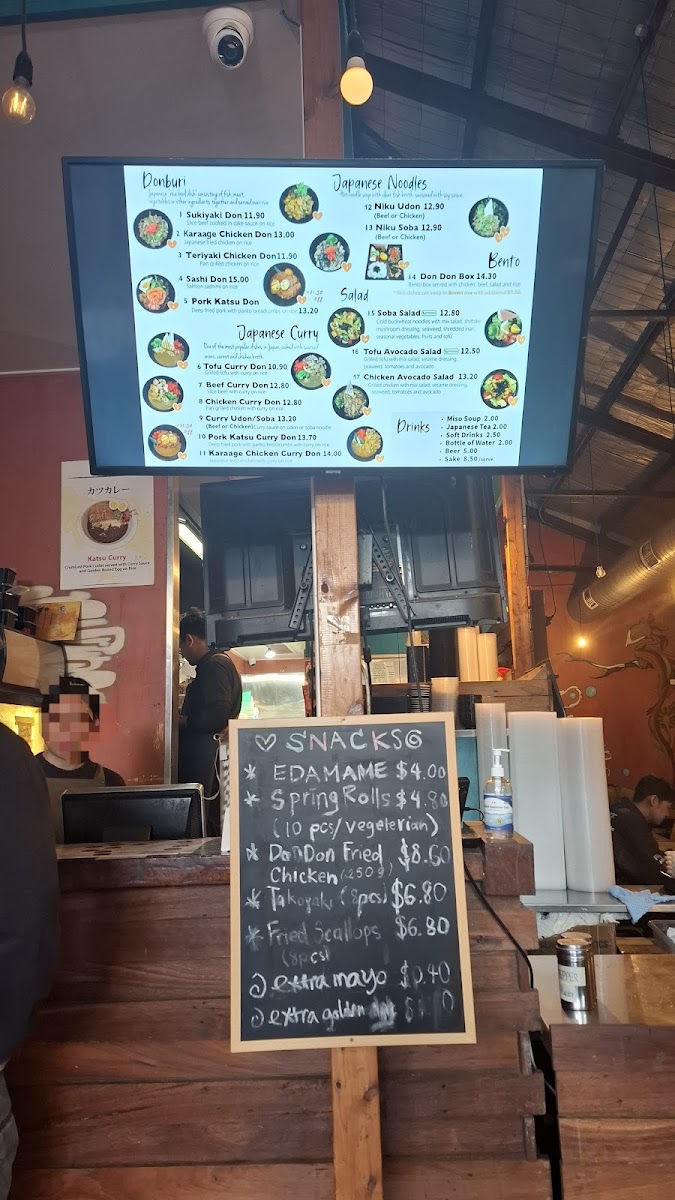 Donburi
Japanese 'rice bowl dish' consisting of fish, meat,
vegetables or other ingredients together and served over rice
1 Sukiyaki Don 11.90
Slice beef cooked in sake sauce on rice
2 Karaage Chicken Don 13.00
Japanese fried chicken on rice
3 Teriyaki Chicken Don 11.90
Pan grilled chicken on rice
4 Sashi Don 15.00
Salmon sashimi on rice
5 Pork Katsu Don
Deep fried pork with panko breadcrumbs on rice 13.20
Japanese Curry
One of the most popular dishes in Japan, cooked with
6 Tofu Curry Don 10.90
Grilled tofu with curry on rice
7 Beef Curry Don 12.80
Slice beef with curry on rice
8 Chicken Curry Don 12.80
Pan grilled chicken with curry on rice
9 Curry Udon/Soba 13.20
(Beef or Chicken) Curry sauce on udon or soba noodle
10 Pork Katsu Curry Don 13.70
Deep fried pork with panko breadcrumbs with curry on rice
11 Karaage Chicken Curry Don 14.00
Japanese Noodles
Hot noodle soup with clear fish broth, seasoned with soy sauce.
12 Niku Udon 12.90
(Beef or Chicken)
13 Niku Soba 12.90
(Beef or Chicken)
Bento
14 Don Don Box 14.30
Bento box served with chicken, beef, salad and rice
Salad
15 Soba Salad 12.80
Cold buckwheat noodles with mix salad, shiitake
mushroom dressing, seaweed, shredded nori,
seasonal vegetables, fruits and tofu
16 Tofu Avocado Salad 12.50
Grilled tofu with mix salad, sesame dressing,
seaweed, tomatoes and avocado
17 Chicken Avocado Salad 13.20
Grilled chicken with mix salad, sesame dressing,
seaweed, tomatoes and avocado
Drinks
- Miso Soup 2.00
- Japanese Tea 2.00
- Soft Drinks 2.50
- Bottle of Water 2.00
- Beer 5.00
- Sake 8.50
カツカレー
Katsu Curry
Crumbed Pork Cutlet served with Curry Sauce
and Golden Boiled Egg on Rice
SNACKS
* EDAMAME $4.00
* Spring Rolls $4.80
(10 pcs/vegeterian)
* DonDon Fried $8.60
Chicken (250g)
* Takoyaki (8pcs) $6.80
* Fried Scallops $6.80
(8pcs)
extra mayo $0.40
extra golden
PEPPER